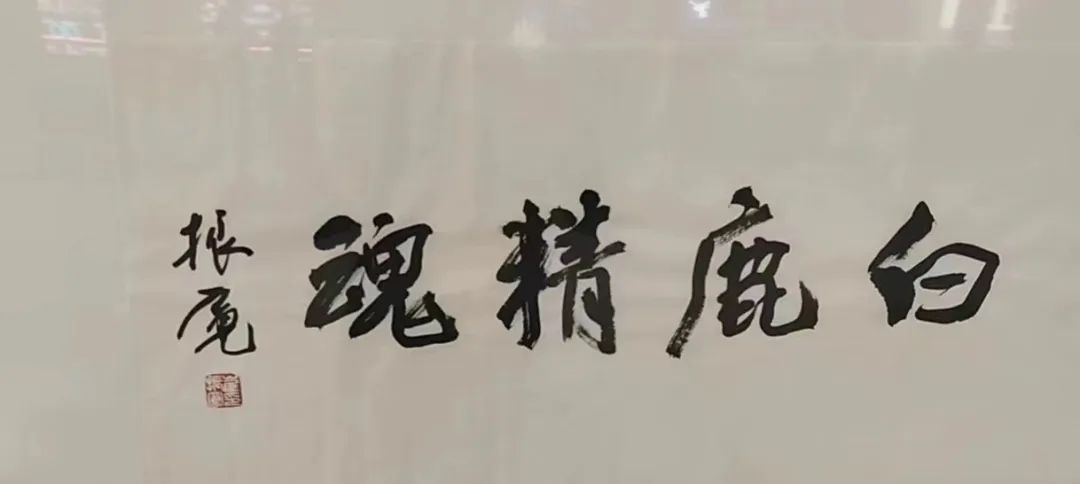 白鹿精魂
振庵